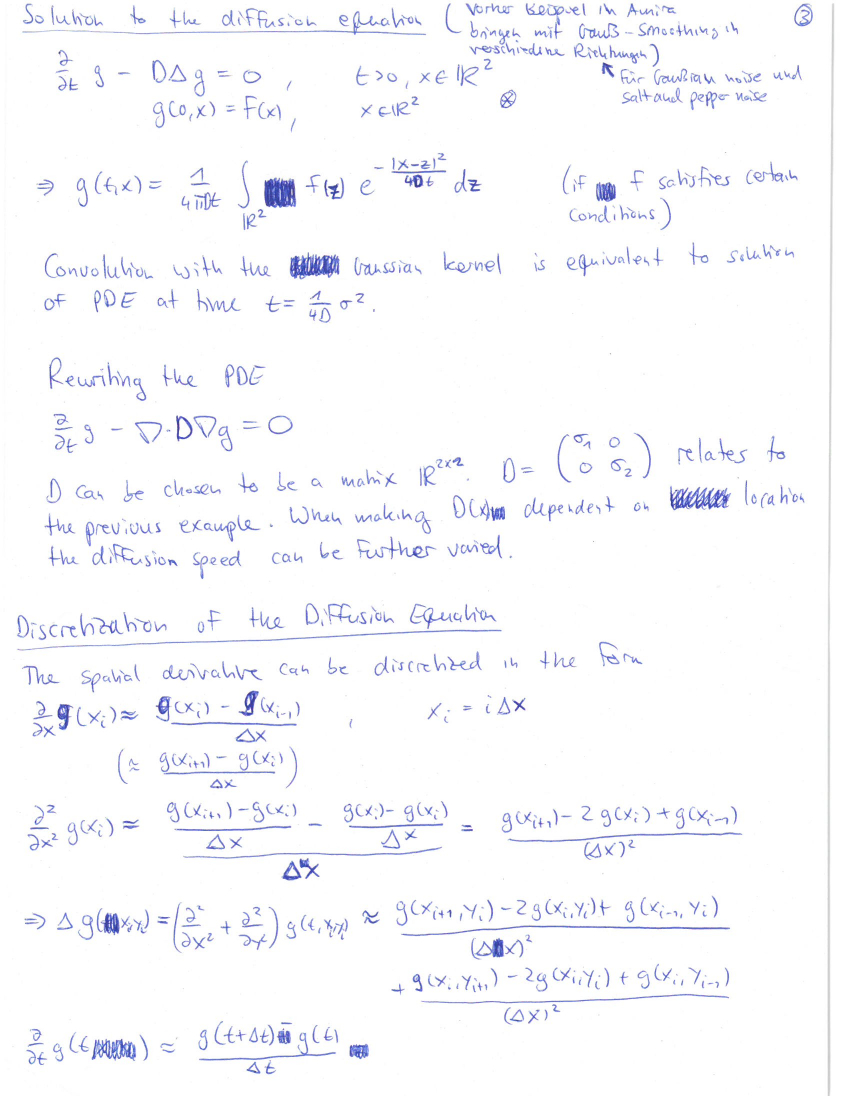 Solution to the diffusion equation (Vorher Beispiel in Amira
bringen mit Gauß-Smoothing in
verschiedene Richtungen)
③
↖ Für Gaußian noise und
salt and pepper noise
∂/∂t g - DΔg = 0 , t>0, x∈ℝ²
g(0,x) = f(x), x∈ℝ² ⊗
⇒ g(t,x) = 1/(4πDt) ∫_ℝ² f(z) e^(-|x-z|²/(4Dt)) dz (if f satisfies certain
conditions)
Convolution with the Gaussian kernel is equivalent to solution
of PDE at time t = 1/(4D) σ².
Rewriting the PDE
∂/∂t g - ∇·D∇g = 0
D can be chosen to be a matrix ℝ²ˣ². D = (σ₁ 0 0 σ₂) relates to
the previous example. When making D(x) dependent on location
the diffusion speed can be further varied.
Discretization of the Diffusion Equation
The spatial derivative can be discretized in the form
∂/∂x g(xᵢ) ≈ (g(xᵢ) - g(xᵢ₋₁))/Δx , xᵢ = iΔx
(≈ (g(xᵢ₊₁) - g(xᵢ))/Δx)
∂²/∂x² g(xᵢ) ≈ ((g(xᵢ₊₁)-g(xᵢ))/Δx - (g(xᵢ)-g(xᵢ))/Δx)/Δx = (g(xᵢ₊₁) - 2g(xᵢ) + g(xᵢ₋₁))/(Δx)²
⇒ Δg(xᵢ,yᵢ) = (∂²/∂x² + ∂²/∂y²) g(t,xᵢ,yᵢ) ≈ (g(xᵢ₊₁,yᵢ) - 2g(xᵢ,yᵢ) + g(xᵢ₋₁,yᵢ))/(Δx)²
+ (g(xᵢ,yᵢ₊₁) - 2g(xᵢ,yᵢ) + g(xᵢ,yᵢ₋₁))/(Δx)²
∂/∂t g(t) ≈ (g(t+Δt) - g(t))/Δt